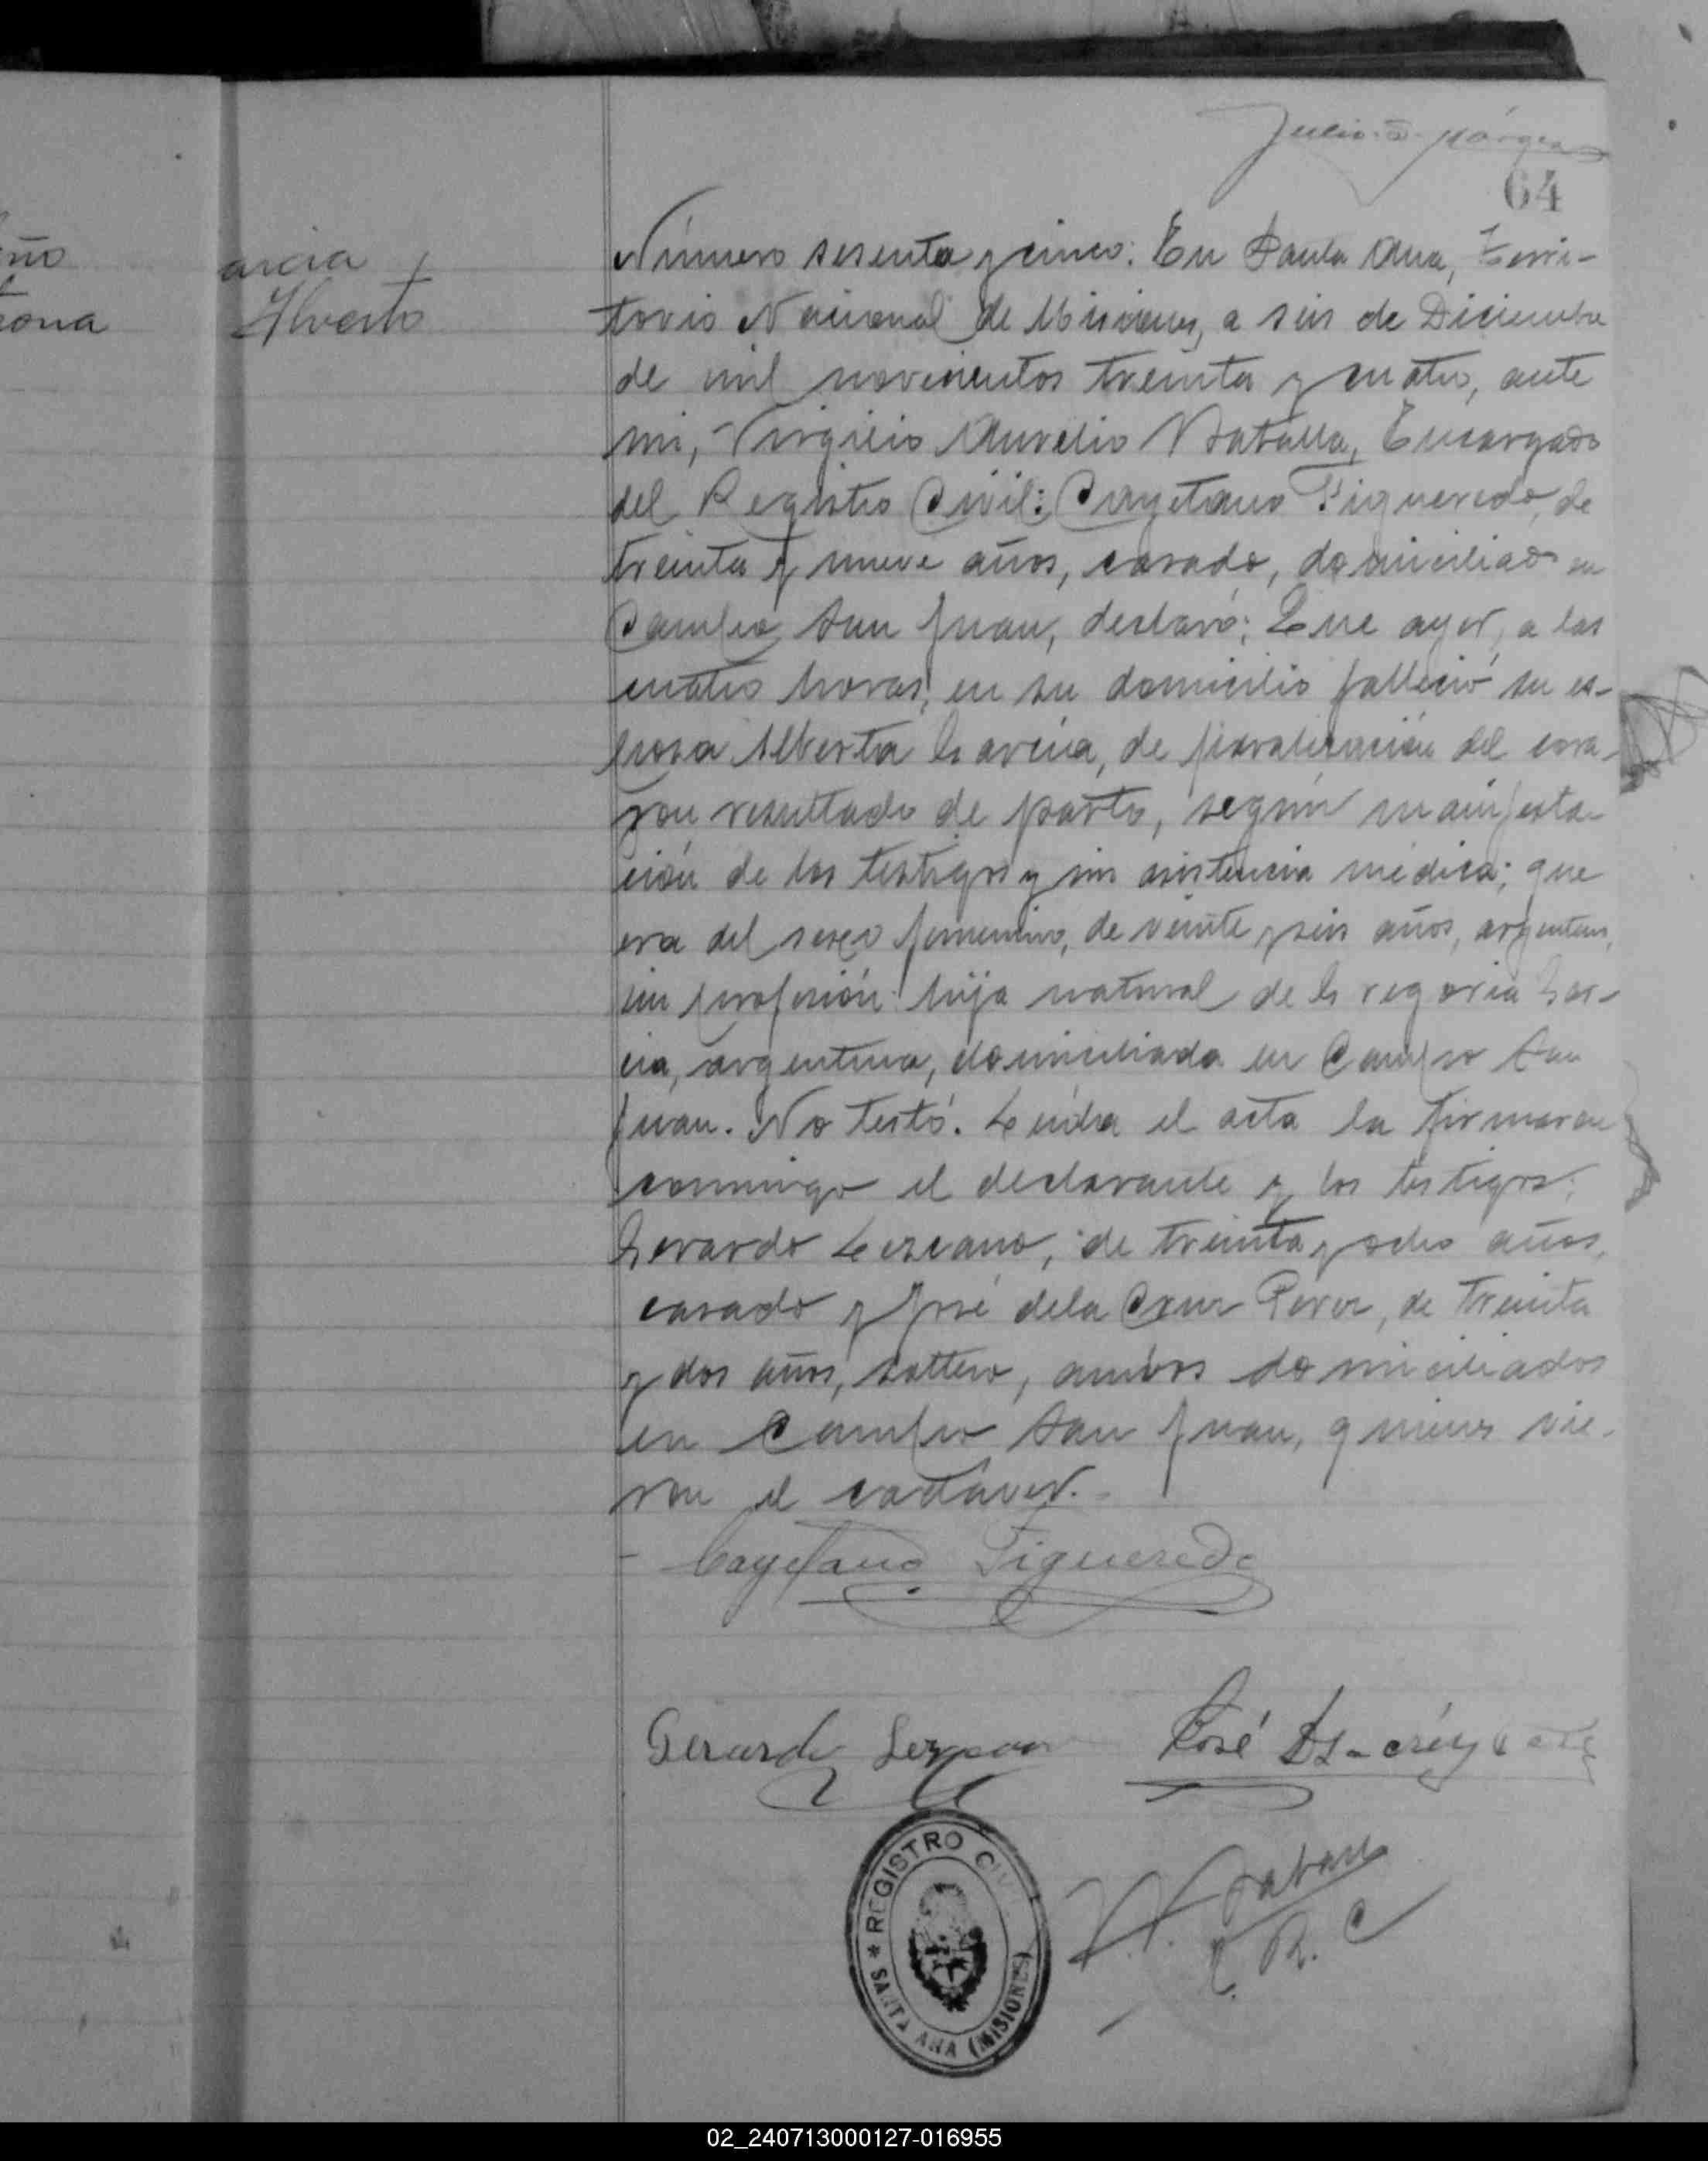 64
arcia
Alberto
Número sesenta y cinco: En Santa Ana, Terri-
torio Nacional de Misiones, a seis de Diciembre
de mil novecientos treinta y cuatro, ante
mi, Virgilio Aurelio Batalla, Encargado
del Registro Civil: Cayetano Figueredo, de
treinta y nueve años, casado, domiciliado en
Campo San Juan, declaró: Que ayer, a las
cuatro horas, en su domicilio falleció su es-
posa Alberta Garcia, de paralización del cora-
zon resultado de parto, según manifesta-
ción de los testigos y sin asistencia médica; que
era del sexo femenino, de veinte y seis años, argentina,
sin profesión: hija natural de Gregoria Gar-
cia, argentina, domiciliada en Campo San
Juan. No testó. Leida el acta la firmaron
conmigo el declarante y los testigos:
Gerardo Lezcano, de treinta y ocho años,
casado y José dela Cruz Perez, de treinta
y dos años, soltero, ambos domiciliados
en Campo San Juan, quienes vie-
ron el cadáver.
Cayetano Figueredo
Gerardo Lezcano José
REGISTRO CIVIL
* SANTA ANA (MISIONES)
E. R. C
ño
ona
02_240713000127-016955